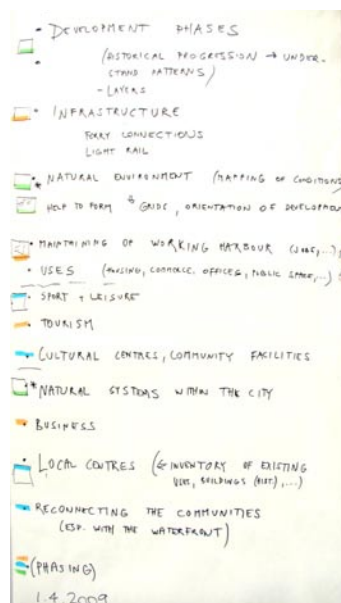 - DEVELOPMENT PHASES
(HISTORICAL PROGRESSION → UNDER-
STAND PATTERNS)
- LAYERS
• INFRASTRUCTURE
FERRY CONNECTIONS
LIGHT RAIL
* NATURAL ENVIRONMENT (MAPPING OF CONDITIONS
HELP TO FORM GRIDS, ORIENTATION OF DEVELOPMEN
• MAINTAINING OF WORKING HARBOUR (JOBS,...),
• USES (HOUSING, COMMERCE, OFFICES, PUBLIC SPACE,...)
• SPORT + LEISURE
• TOURISM
• CULTURAL CENTRES, COMMUNITY FACILITIES
* NATURAL SYSTEMS WITHIN THE CITY
• BUSINESS
• LOCAL CENTRES (← INVENTORY OF EXISTING
USES, BUILDINGS (HIST.),...)
• RECONNECTING THE COMMUNITIES
(ESP. WITH THE WATERFRONT)
• (PHASING)
1.4.2009